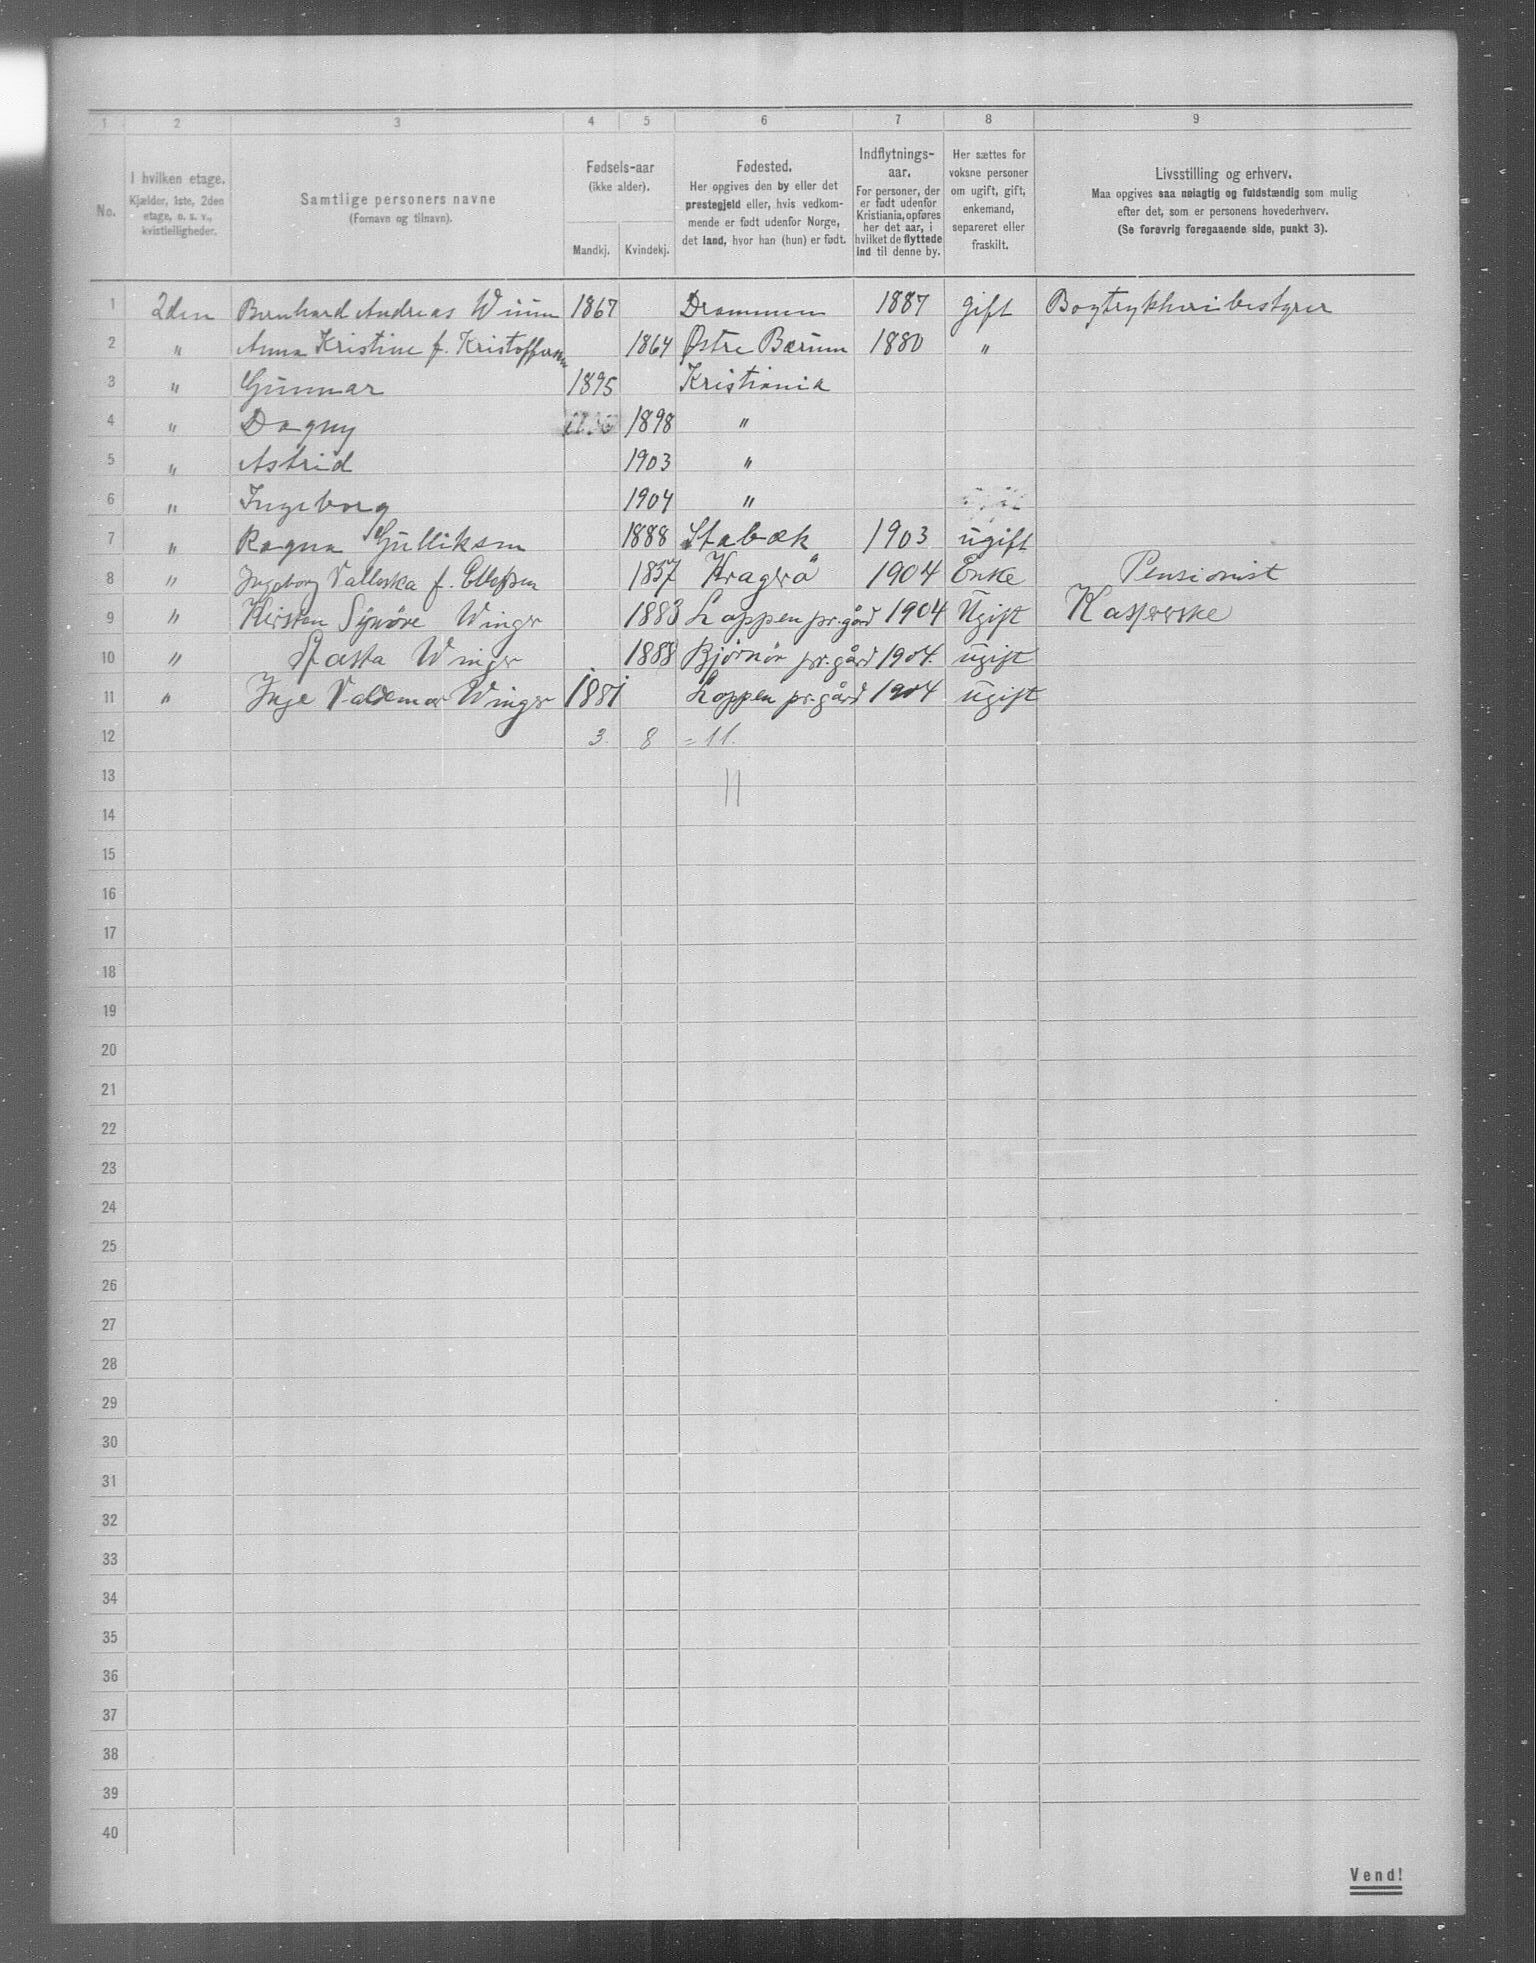 1 2 3 4 5 6 7 8 9
No.
I hvilken etage.
Kjælder, 1ste, 2den
etage, o. s. v.,
kvistleiligheder.
Samtlige personers navne
(Fornavn og tilnavn).
Fødsels-aar
(ikke alder).
Mandkj. Kvindekj.
Fødested.
Her opgives den by eller det
prestegjeld eller, hvis vedkom-
mende er født udenfor Norge,
det land, hvor han (hun) er født.
Indflytnings-
aar.
For personer, der
er født udenfor
Kristiania, opføres
her det aar, i
hvilket de flyttede
ind til denne by.
Her sættes for
voksne personer
om ugift, gift,
enkemand,
separeret eller
fraskilt.
Livsstilling og erhverv.
Maa opgives saa nøiagtig og fuldstændig som mulig
efter det, som er personens hovederhverv.
(Se forøvrig foregaaende side, punkt 3).
1 2den Bernhard Andreas Wium 1867 Drammen 1887 gift Bogtrykkeribestyrer
2 " Anna Kristine f. Kristoffersen 1864 Østre Bærum 1880 "
3 " Gunnar 1895 Kristiania
4 " Dagny 1898 "
5 " Astrid 1903 "
6 " Ingeborg 1904 "
7 " Ragna Gulliksen 1888 Stabæk 1903 ugift
8 " Ingeborg Valleska f. Ellefsen 1857 Kragerö 1904 Enke Pensionist
9 " Kirsten Synöve Winger 1883 Loppen pr.gård 1904 Ugift Kasserske
10 " Aasta Winger 1888 Bjørnör pr.gård 1904. ugift
11 " Inge Valdemar Winger 1881 Loppen pr.gård 1904 ugift
12 3. 8 = 11.
13 11
14
15
16
17
18
19
20
21
22
23
24
25
26
27
28
29
30
31
32
33
34
35
36
37
38
39
40
Vend!